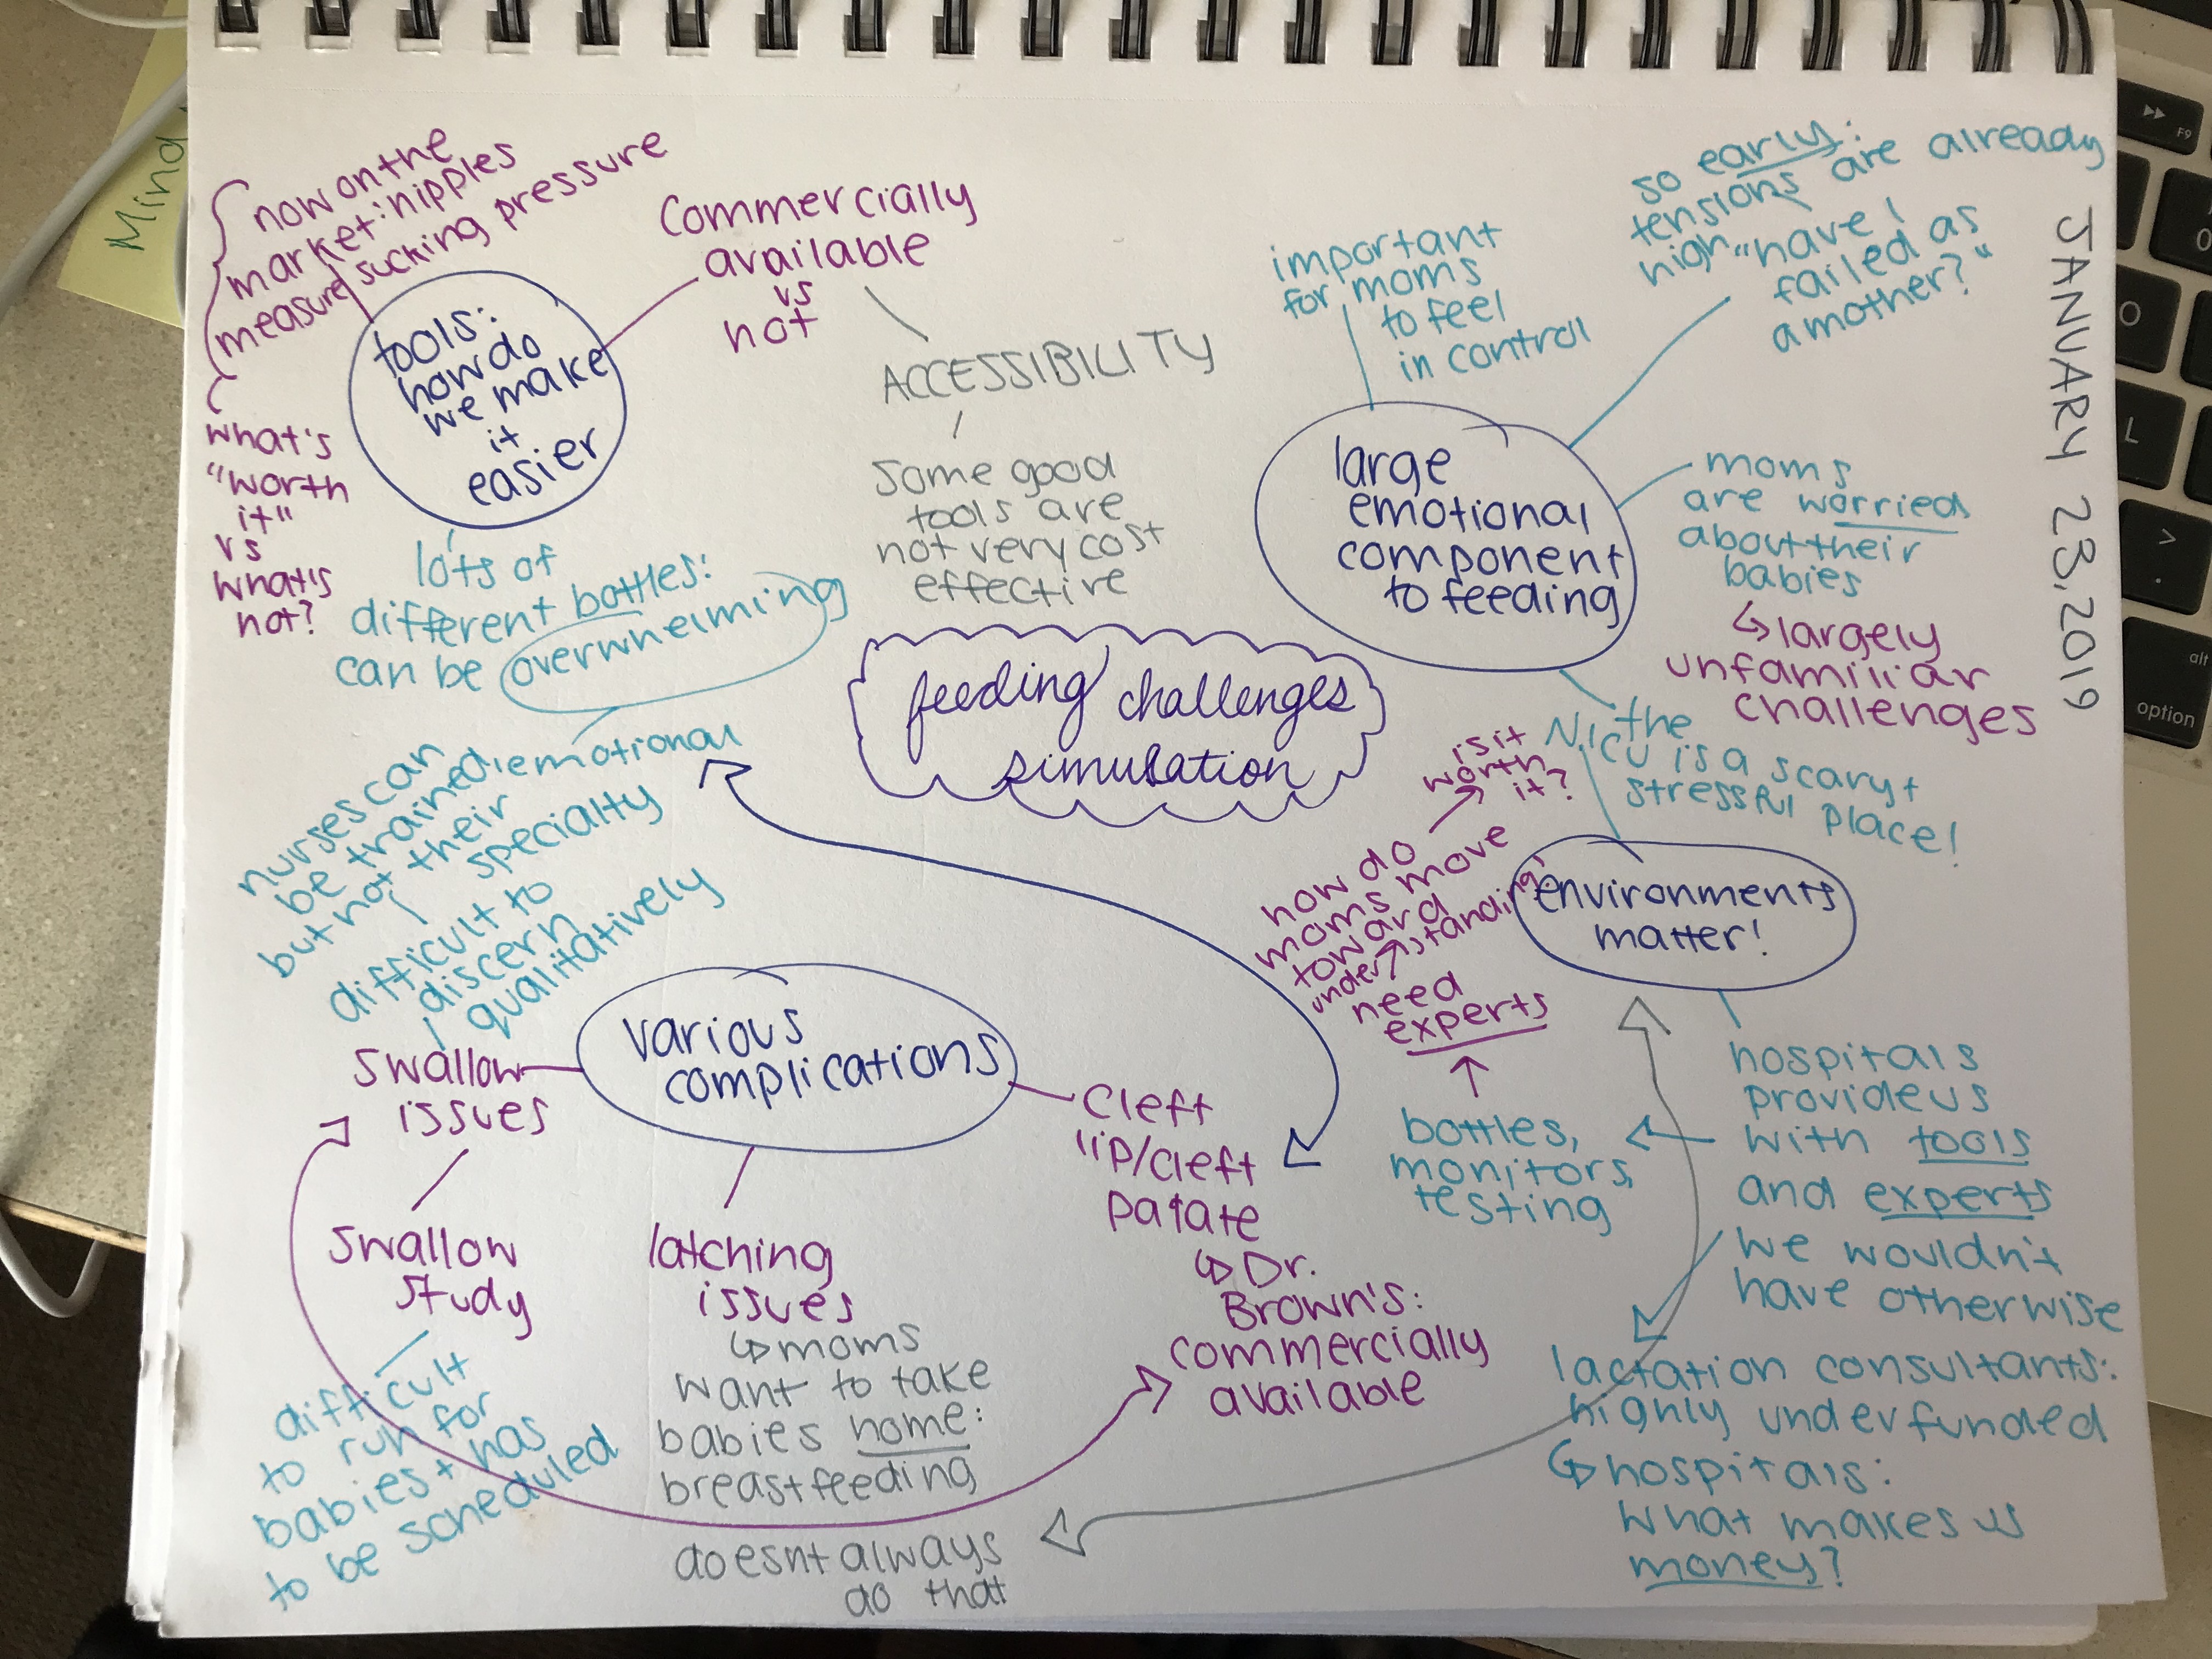 Mind
now on the
market: nipples
measure sucking pressure
what's
"worth
it"
vs
what's
not?
tools:
how do
we make
it
easier
Commercially
available
vs
not
ACCESSIBILITY
Some good
tools are
not very cost
effective
lots of
different bottles:
can be overwhelming
emotional
important
for moms
to feel
in control
so early:
tensions are already
high "have I
failed as
a mother?"
JANUARY 23, 2019
large
emotional
component
to feeding
moms
are worried
about their
babies
↳ largely
unfamiliar
challenges
feeding challenges
simulation
the
NICU is a scary +
stressful place!
environments
matter!
is it
worth
it?
how do
moms move
toward
understanding
need
experts
bottles,
monitors,
testing
hospitals
provide us
with tools
and experts
we wouldn't
have otherwise
lactation consultants:
highly underfunded
↳ hospitals:
what makes us
money?
nurses can
be trained:
but not their
specialty
difficult to
discern
qualitatively
various
complications
Swallow
issues
Swallow
study
difficult
to run for
babies + has
to be scheduled
latching
issues
↳ moms
want to take
babies home:
breastfeeding
doesnt always
do that
Cleft
lip/cleft
palate
↳ Dr.
Brown's:
commercially
available
F9
O
L
>
.
alt
option